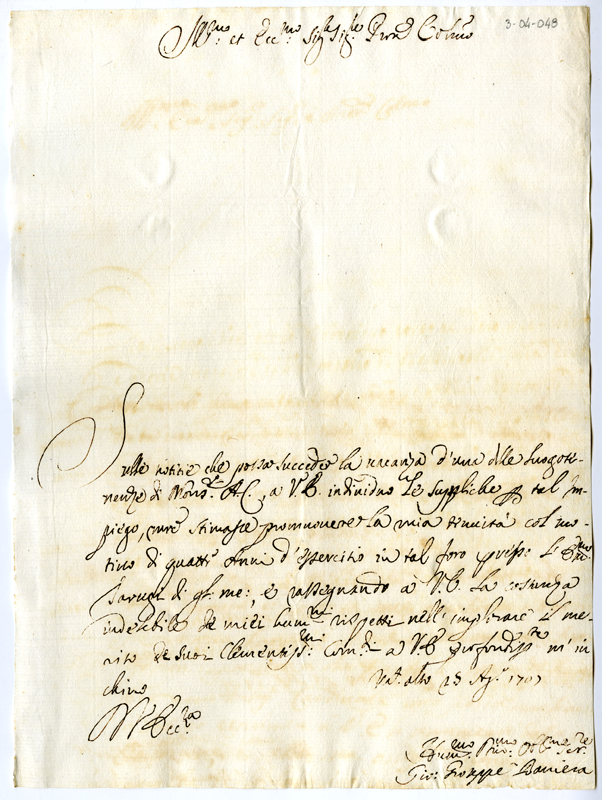 3-04-048
Ill.mo et Ecc.mo Sig.r Sig.r Pron Col.mo
Sulle notitie che possa succeder la vacanza d'una delle Luogote-
nenze di Mons.r A.C., a V.E. individuo le suppliche p tal Im-
piego, stimasse promuovere la mia tenuità col mo-
tivo di quattr'Anni d'esercitio in tal foro
di gl: me:, e rassegnando à V.E. la costanza
indelebile de miei hum.mi rispetti nell'implorare il me-
rito de suoi Clementiss.mi Com.di a V.E. profondiss.te m'in
chino
23 Ag.o 1707
D V Ecc.za
Hum.mo Div.mo Obb.mo Ser.re
Gio: Gioseppe